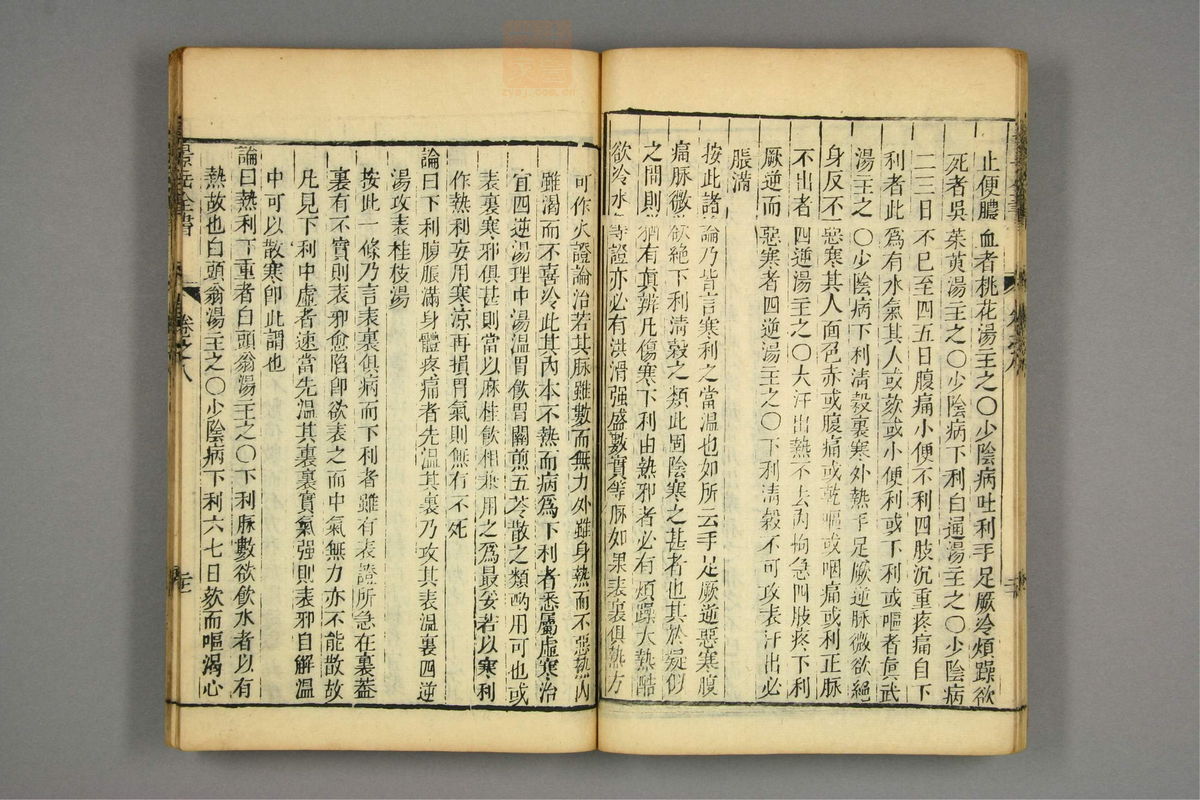 止便膿血者桃花湯主之〇少陰病吐利手足厥冷煩躁欲
死者吳茱萸湯主之〇少陰病下利白通湯主之〇少陰病
二三日不已至四五日腹痛小便不利四肢沉重疼痛自下
利者此爲有水氣其人或欬或小便利或下利或嘔者眞武
湯主之〇少陰病下利清穀裏寒外熱手足厥逆脉微欲絕
身反不惡寒其人面色赤或腹痛或乾嘔或咽痛或利止脉
不出者四逆湯主之〇大汗出熱不去內拘急四肢疼下利
厥逆而惡寒者四逆湯主之〇下利清穀不可攻表汗出必
脹滿
按此諸論乃皆言寒利之當溫也如所云手足厥逆惡寒腹
痛脉微欲絕下利清穀之類此固陰寒之甚者也其於疑似
之間則猶有眞辨凡傷寒下利由熱邪者必有煩躁大熱酷
欲冷水等證亦必有洪滑强盛數實等脉如果表裏俱熱方
可作火證論治若其脉雖數而無力外雖身熱而不惡熱內
雖渴而不喜冷此其內本不熱而病爲下利者悉屬虛寒治
宜四逆湯理中湯溫胃飲胃關煎五苓散之類酌用可也或
表裏寒邪俱甚則當以麻桂飲相兼用之爲最妥若以寒利
作熱利妄用寒涼再損胃氣則無有不死
論曰下利腹脹滿身體疼痛者先溫其裏乃攻其表溫裏四逆
湯攻表桂枝湯
按此一條乃言表裏俱病而下利者雖有表證所急在裏葢
裏有不實則表邪愈陷卽欲表之而中氣無力亦不能散故
凡見下利中虛者速當先溫其裏裏實氣强則表邪自解溫
中可以散寒卽此謂也
論曰熱利下重者白頭翁湯主之〇下利脉數欲飲水者以有
熱故也白頭翁湯主之〇少陰病下利六七日欬而嘔渴心
景岳全書
卷之八